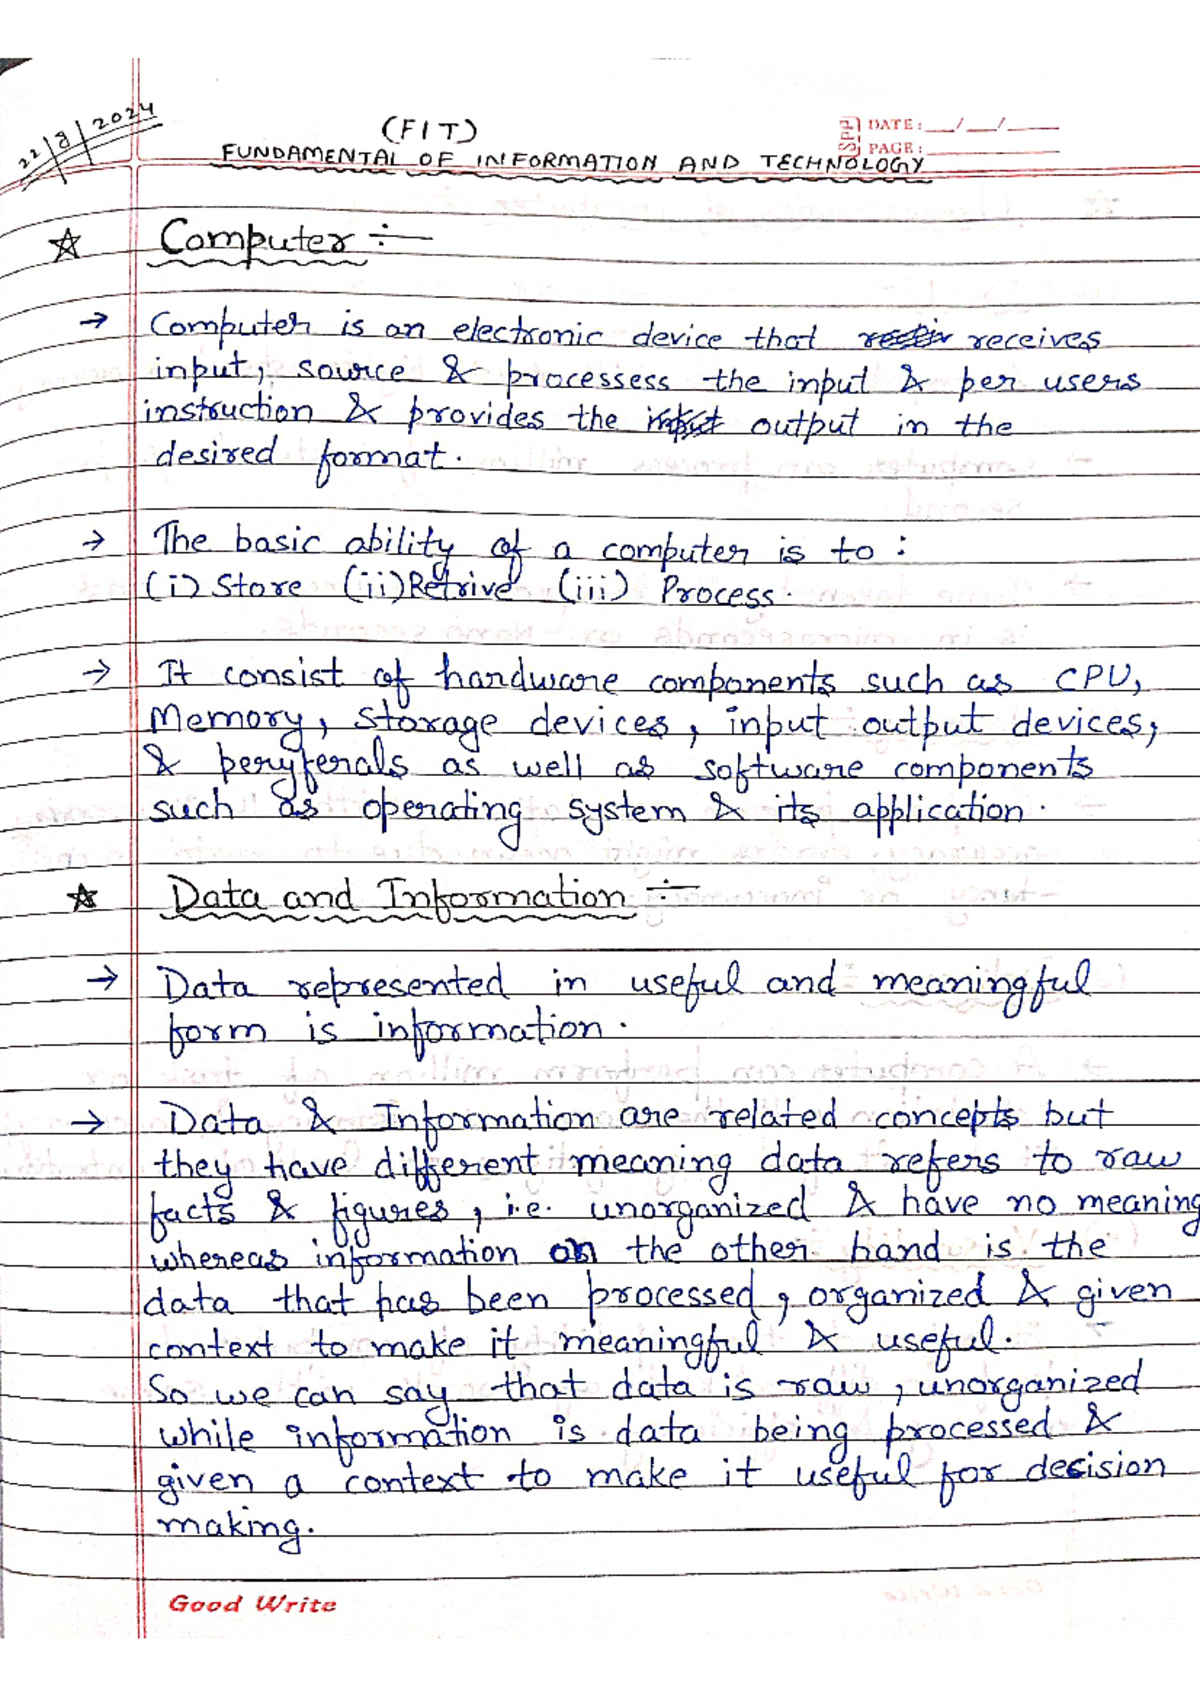 22/8/2024
(FIT)
DATE: __/__/____
PAGE:
FUNDAMENTAL OF INFORMATION AND TECHNOLOGY
Computer :-
→ Computer is an electronic device that receives
input, source & processess the input & per users
instruction & provides the output in the
desired format.
→ The basic ability of a computer is to :
(i) Store (ii) Retrive (iii) Process.
→ It consist of hardware components such as CPU,
Memory, Storage devices, input output devices,
& peryferals as well as software components
such as operating system & its application.
Data and Information :-
→ Data represented in useful and meaningful
form is information.
→ Data & Information are related concepts but
they have different meaning data refers to raw
facts & figures, i.e. unorganized & have no meaning
whereas information on the other hand is the
data that has been processed, organized & given
context to make it meaningful & useful.
So we can say that data is raw, unorganized
while information is data being processed &
given a context to make it useful for decision
making.
Good Write